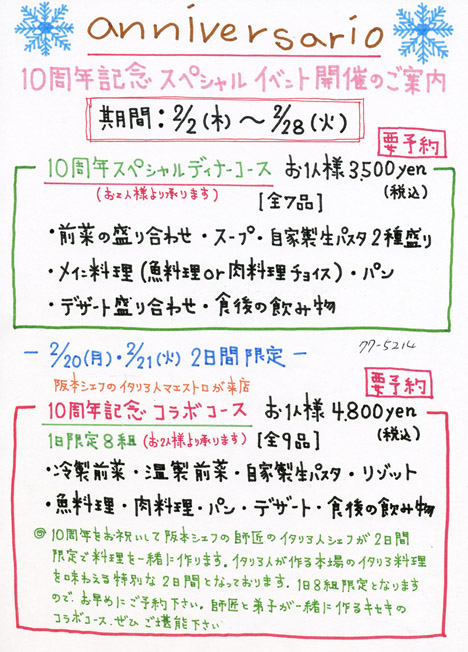 anniversario
10周年記念 スペシャル イベント開催のご案内
期間：2/2(木)～2/28(火)
要予約
10周年スペシャルディナーコース お1人様 3,500yen
(お2人様より承ります) [全7品] (税込)
・前菜の盛り合わせ・スープ・自家製生パスタ2種盛り
・メイン料理(魚料理or肉料理チョイス)・パン
・デザート盛り合わせ・食後の飲み物
－2/20(月)・2/21(火) 2日間限定－ 77-5214
阪本シェフのイタリア人マエストロが来店
要予約
10周年記念 コラボコース お1人様 4,800yen
1日限定8組 (お2人様より承ります) [全9品] (税込)
・冷製前菜・温製前菜・自家製生パスタ・リゾット
・魚料理・肉料理・パン・デザート・食後の飲み物
◎10周年をお祝いして阪本シェフの師匠のイタリア人シェフが2日間
限定で料理を一緒に作ります。イタリア人が作る本場のイタリア料理
を味わえる特別な2日間となっております。1日8組限定となります
ので、お早めにご予約下さい。師匠と弟子が一緒に作るキセキの
コラボコース、ぜひご堪能下さい